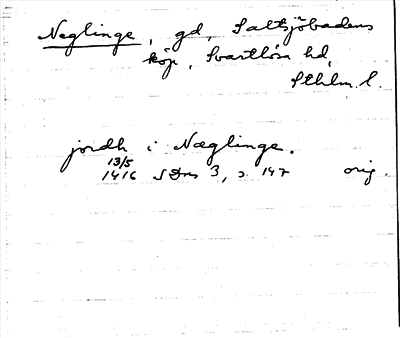 Neglinge, gd, Saltsjöbadens
köp, Svartlösa hd,
Sthlm. l.
jordh i Næglinge.
13/5
1416 SDns 3, s. 147 orig.